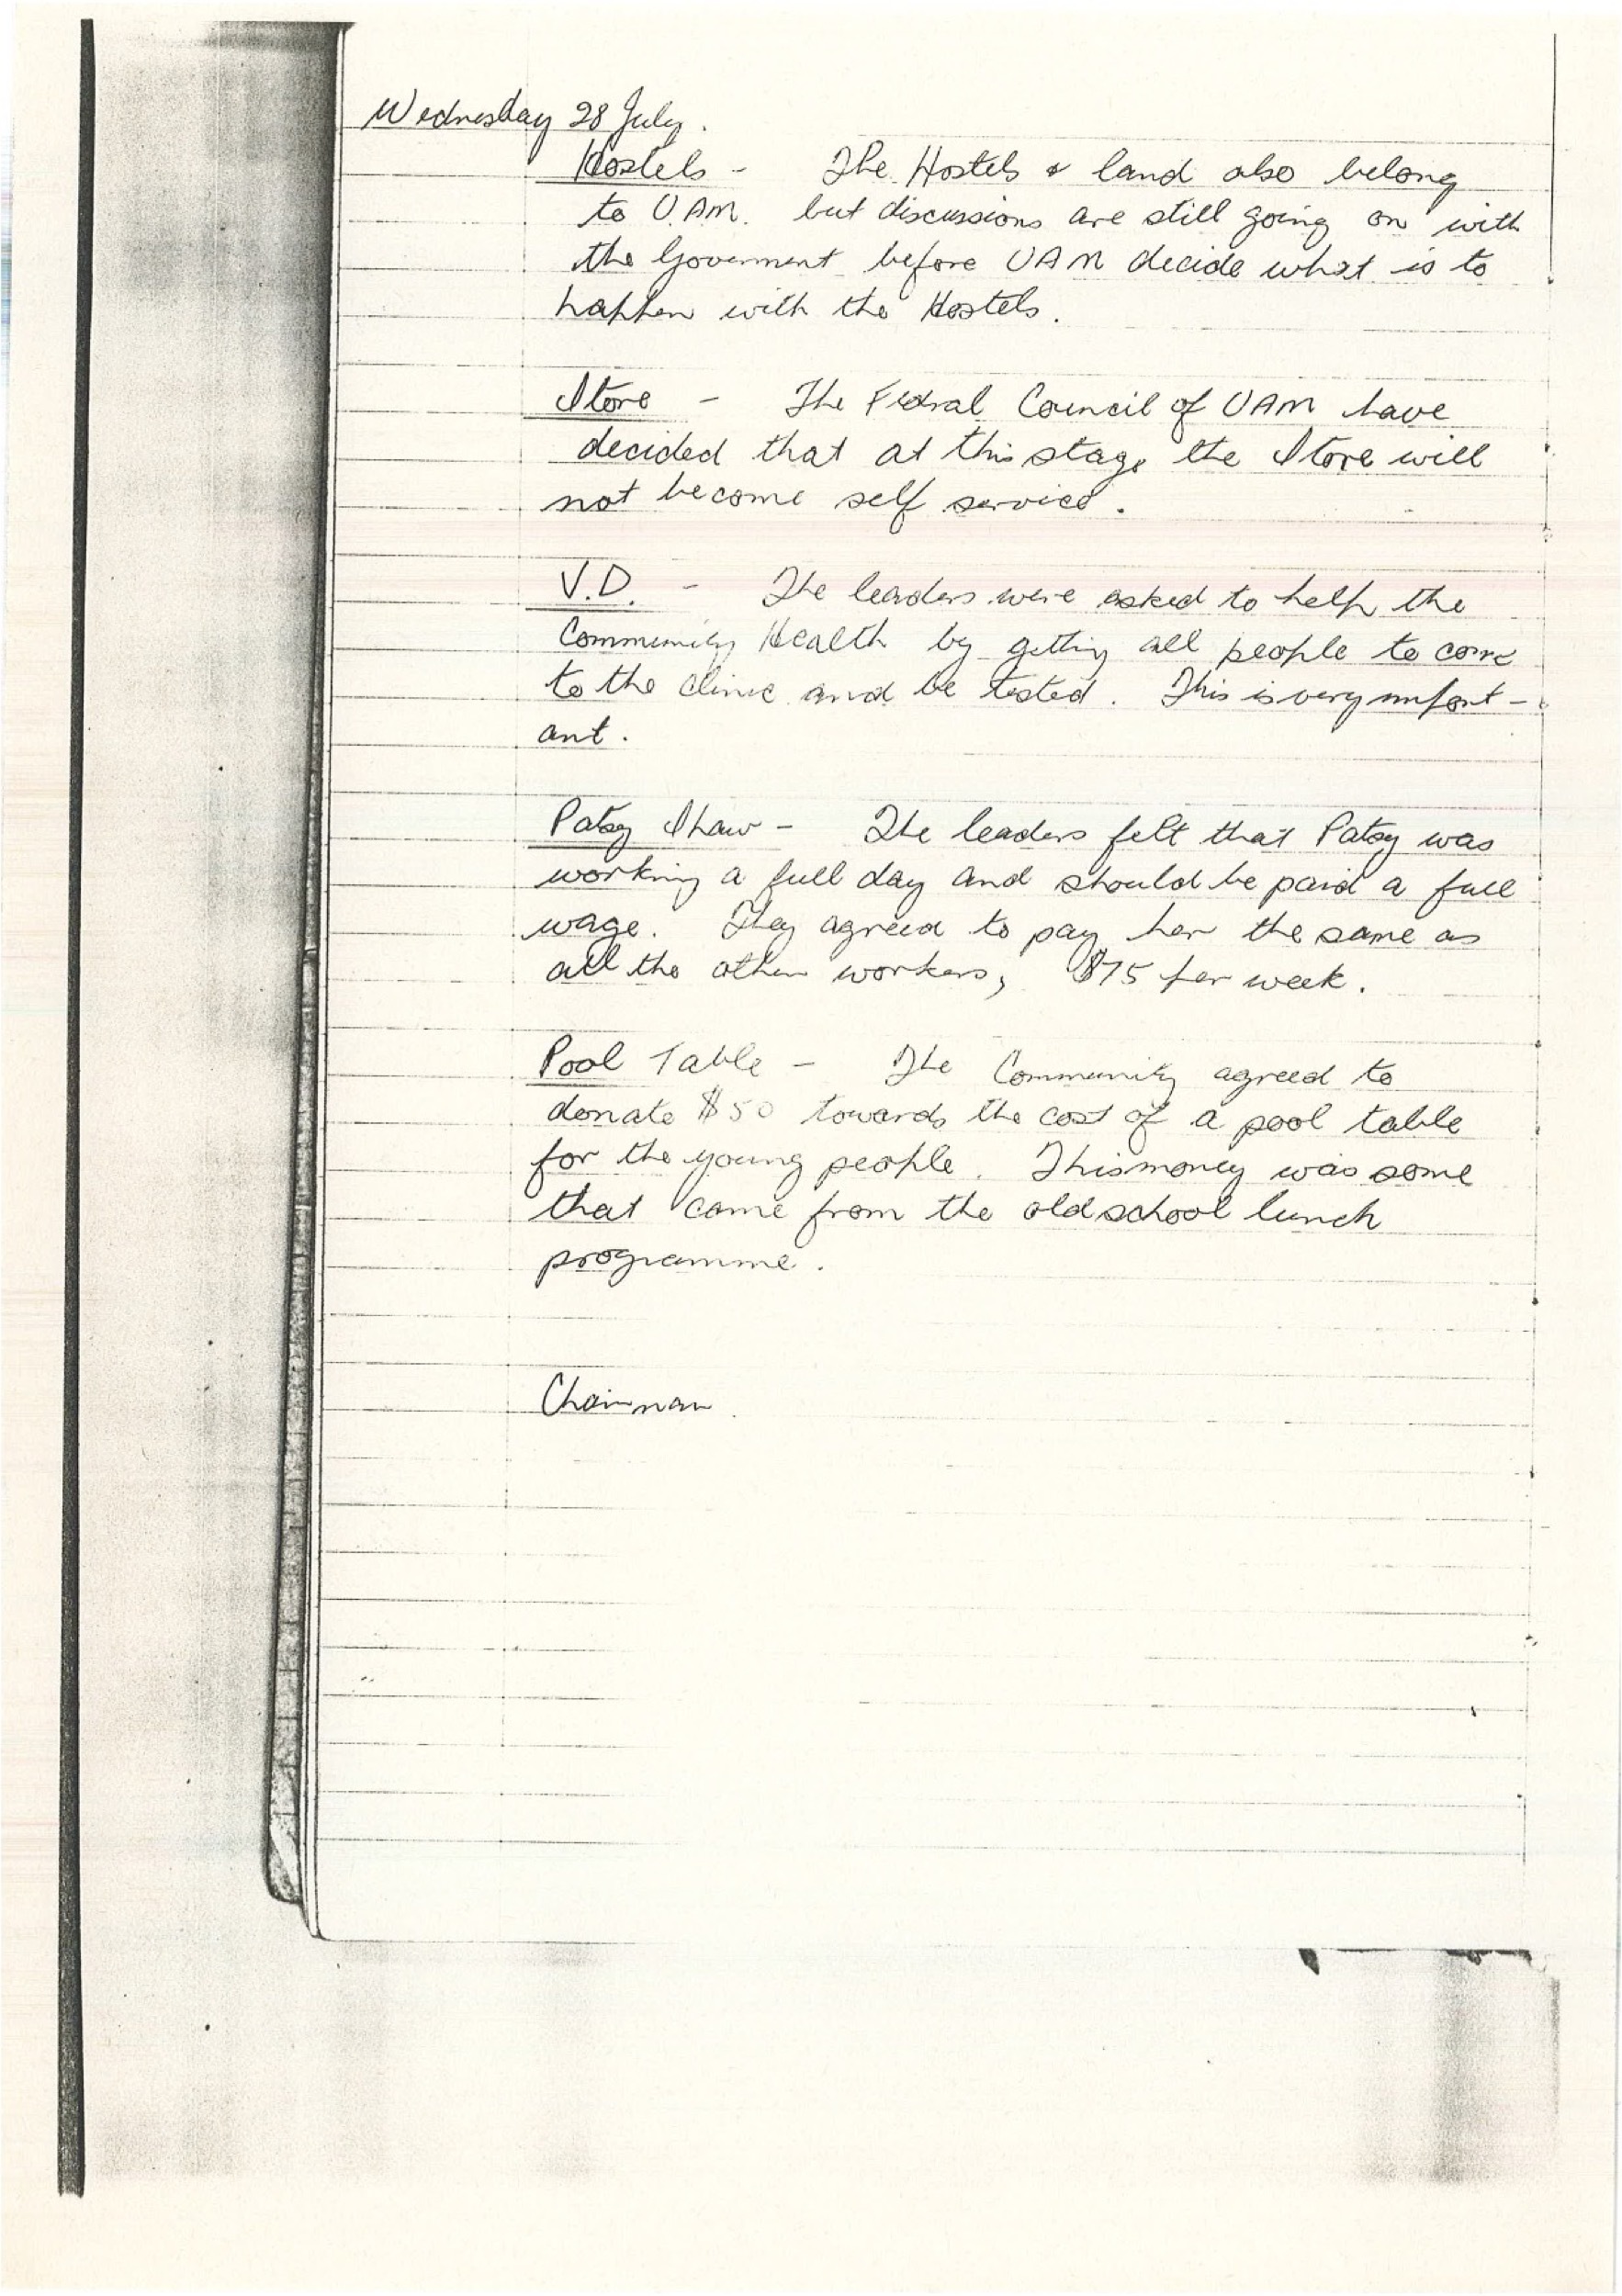 Wednesday 28 July.
Hostels - The Hostels & land also belong
to U.A.M. but discussions are still going on with
the Goverment before UAM decide what is to
happen with the Hostels.
Store - The Fedral Council of UAM have
decided that at this stage the Store will
not become self service.
V.D. - The leaders were asked to help the
Community Health by getting all people to come
to the clinic and be tested. This is very import-
ant.
Patsy Shaw - The leaders felt that Patsy was
working a full day and should be paid a full
wage. They agreed to pay her the same as
all the other workers, $75 per week.
Pool Table - The Community agreed to
donate $50 towards the cost of a pool table
for the young people. This money was some
that came from the old school lunch
programme.
Chairman